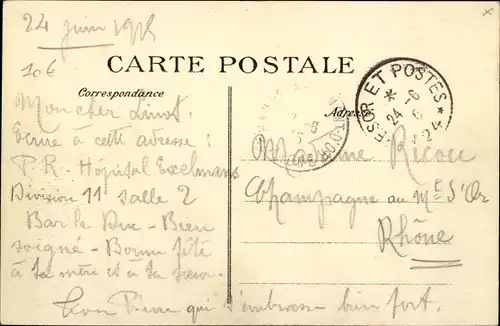 24 juin 1915
10€
CARTE POSTALE
Correspondance
Adresse
TRESOR ET POSTES
24-6
24
Mon cher Linot.
Ecrire à cette adresse :
P. R. - Hôpital Exelmans
Division 11 salle 2
Bar le Duc - Bien
soigné - Bonne fête
à ta mère et à ta sœur.
Ton Pierre qui t'embrasse bien fort.
Madame Ricou
Champagne au Mt d'Or
Rhône